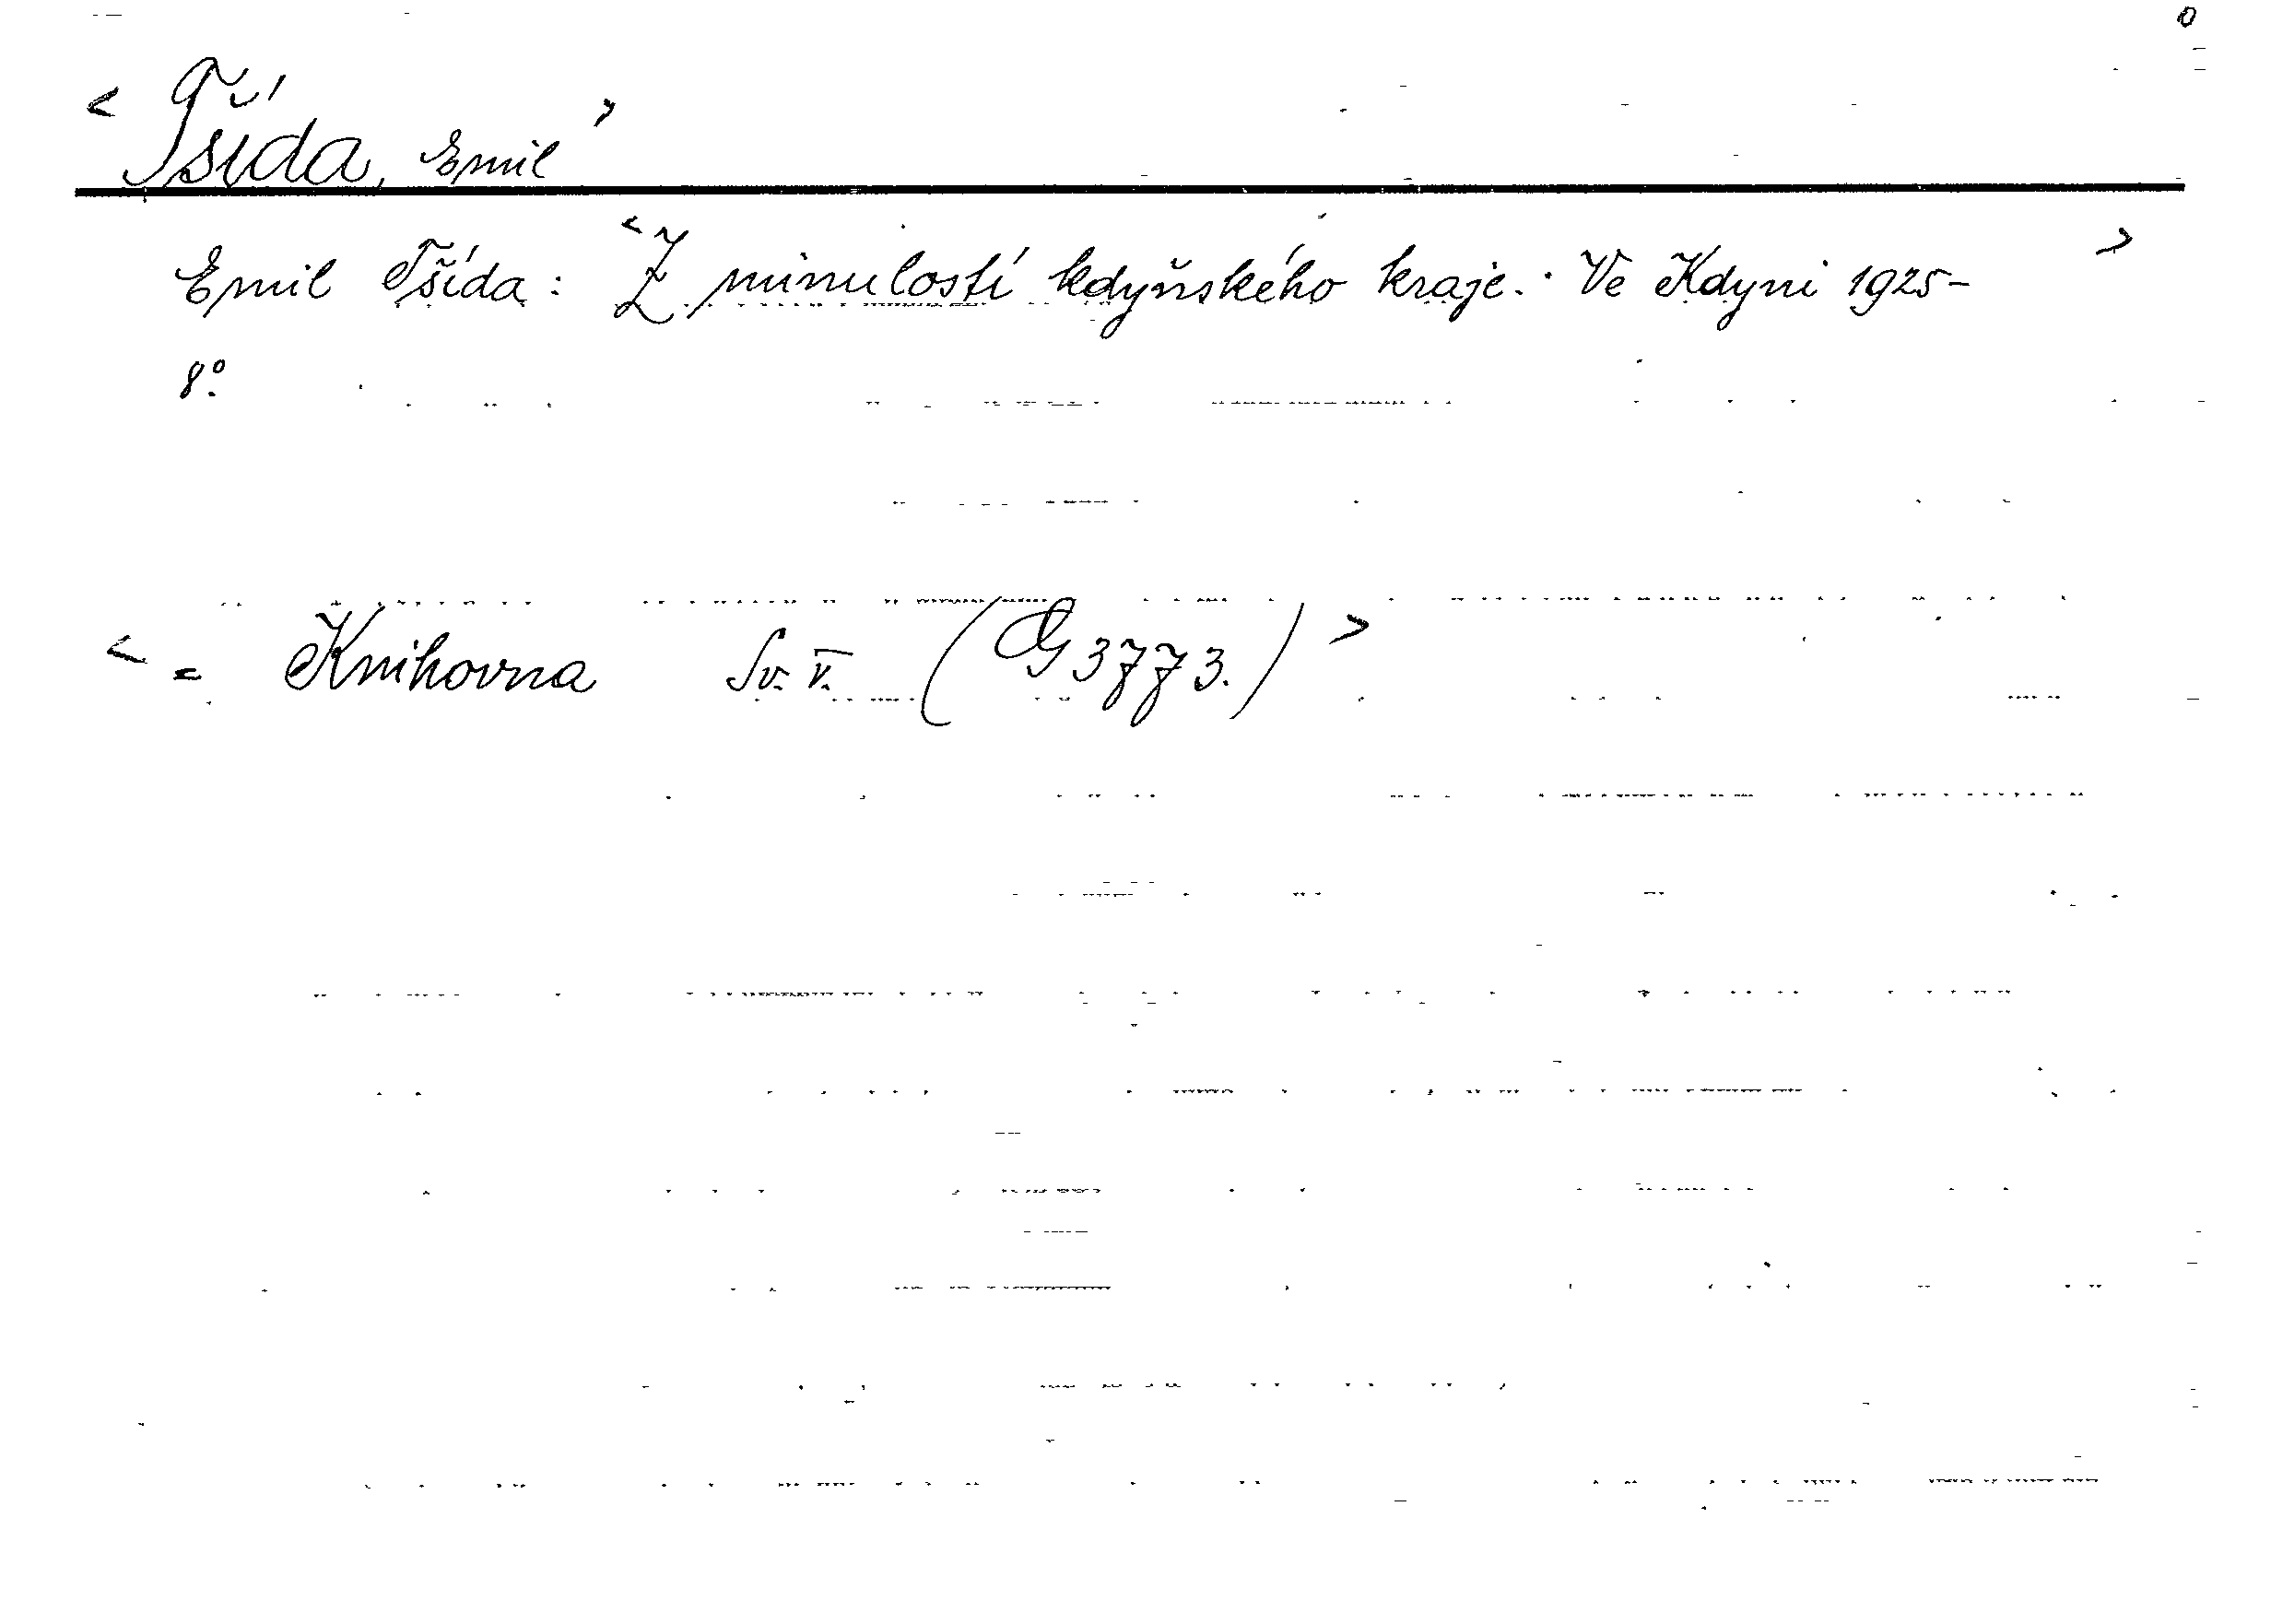 0
< Tšída, Emil >
Emil Tšída: < Z minulosti kdyňského kraje. Ve Kdyni 1925- >
8°.
< = Knihovna Sv. V. (G 3773.) >